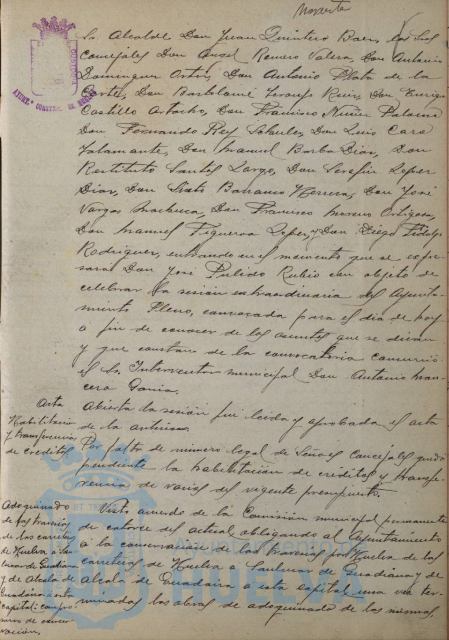 noventa
Sr. Alcalde Don Juan Quintero Baez, los Sres
Concejales Don Angel Romero Valera, Don Antonio
Dominguez Ortiz, Don Antonio Plata de la
Corte, Don Bartolomé Toronjo Ruiz, Don Enrique
Castillo Don Francisco Nuñez Palacios
Don Fernando Rey Don Luis Caro
Don Manuel Barba Dias, Don
Restituto Santos Largo, Don Serafin Lopez
Dias, Don Sixto Barranco Herrera, Don José
Vargas Machuca, Don Francisco Moreno Ortigosa,
Don Manuel Figueroa Lopez, y Don Diego Fidalgo
Rodriguez, entrando en el momento que se expre
sará Don José Pulido Rubio con objeto de
celebrar la sesión extraordinaria del Ayunta
miento Pleno, convocada para el dia de hoy
a fin de conocer de los asuntos que se dirán
y que constan de la convocatoria Concurrió
el Sr. Interventor municipal Don Antonio
Acta
Abierta la sesión fué leida y aprobada el acta
de la anterior.
Habilitación
y transferencia
de creditos
Por falta de número legal de Señores Concejales quedó
pendiente la habilitación de créditos y transfe
rencia de varios del vigente presupuesto.
Adoquinado
de las travesias
de las carreteras
de Huelva a San
lucar de Guadiana
y de Alcalá de
Guadaira a esta
capital: compro
miso de conser
vación.
Visto acuerdo de la Comisión municipal permanente
de catorce del actual obligando al Ayuntamiento
a la conservación de las travesias por Huelva de las
carreteras de Huelva a Sanlucar de Guadiana y de
Alcalá de Guadaira a esta capital una vez ter
minadas las obras de adoquinado de las mismas,